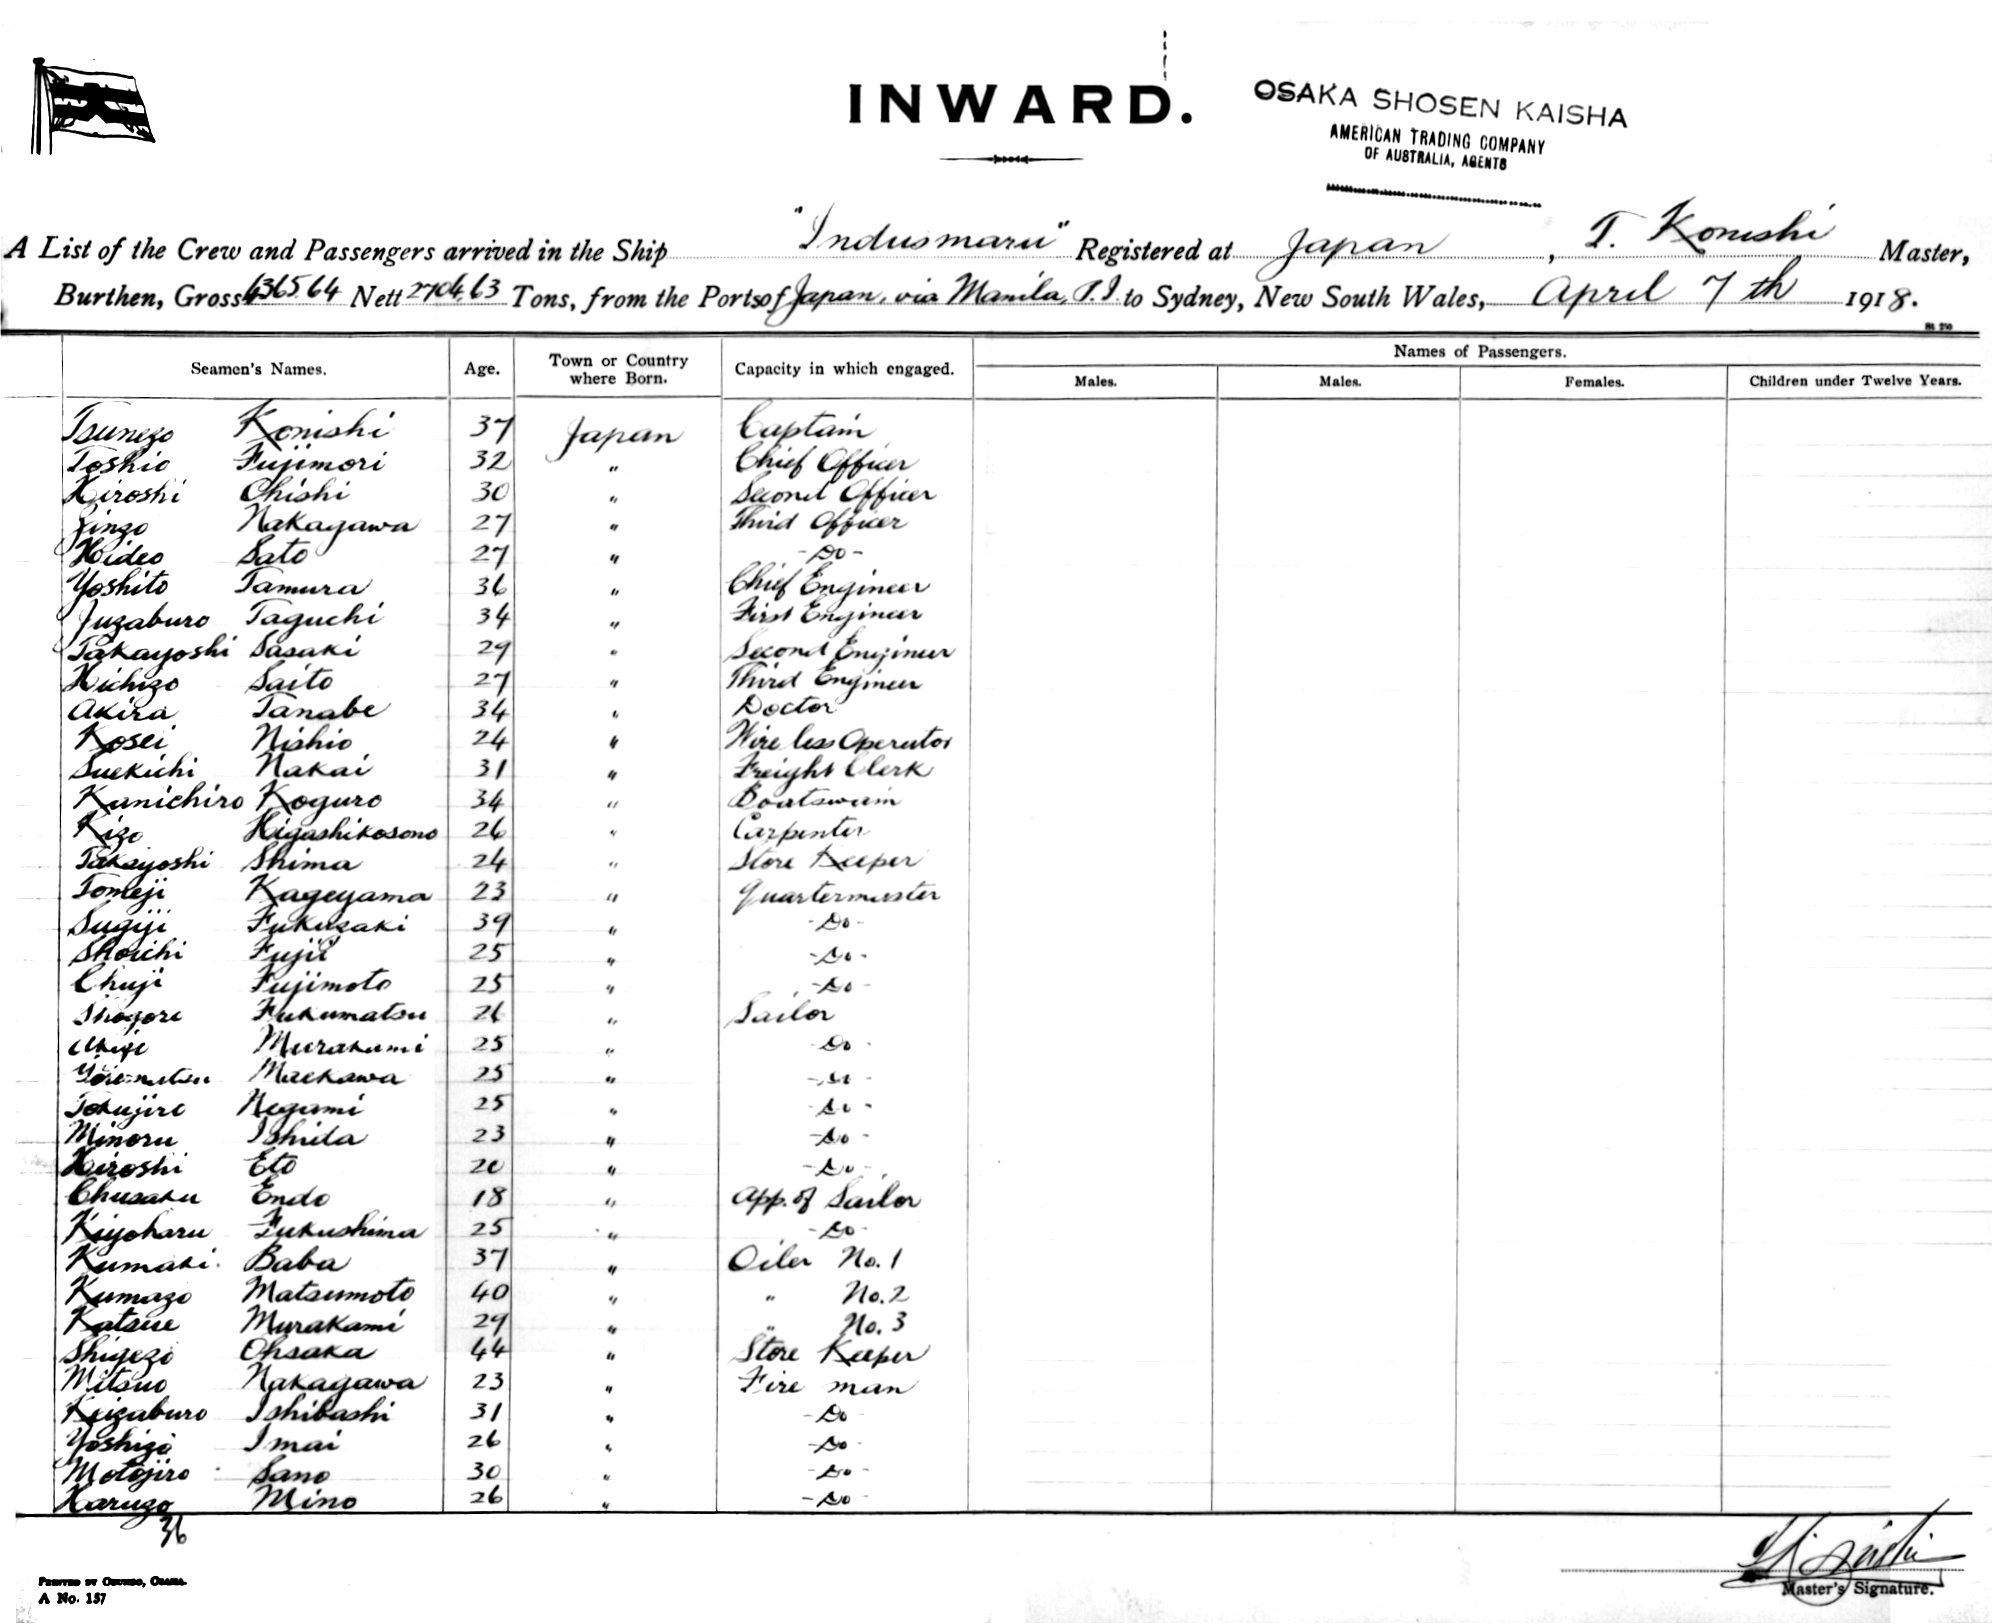 INWARD.
OSAKA SHOSEN KAISHA
AMERICAN TRADING COMPANY
OF AUSTRALIA, AGENTS
A List of the Crew and Passengers arrived in the Ship "Indusmaru" Registered at Japan, T. Konishi Master,
Burthen, Gross 6365.64 Nett 2704.63 Tons, from the Ports of Japan, via Manila, P.I. to Sydney, New South Wales, April 7th 1918.
Seamen's Names. Age. Town or Country where Born. Capacity in which engaged. Names of Passengers.
Males. Males. Females. Children under Twelve Years.
Tsunezo Konishi 37 Japan Captain
Toshio Fujimori 32 " Chief Officer
Hiroshi Ohishi 30 " Second Officer
Jinzo Nakagawa 27 " Third Officer
Hideo Sato 27 " -Do-
Yoshito Tamura 36 " Chief Engineer
Juzaburo Taguchi 34 " First Engineer
Takayoshi Sasaki 29 " Second Engineer
Hichizo Saito 27 " Third Engineer
Akira Tanabe 34 " Doctor
Kosei Nishio 24 " Wireless Operator
Suekichi Nakai 31 " Freight Clerk
Kanichiro Koguro 34 " Boatswain
Kizo Higashikosono 26 " Carpenter
Takayoshi Shima 24 " Store Keeper
Tomeji Kageyama 23 " Quartermaster
Sugiji Fukuzaki 39 " -Do-
Shoichi Fujii 25 " -Do-
Chuji Fujimoto 25 " -Do-
Shogoro Fukumatsu 26 " Sailor
Murakami 25 " -Do-
Maekawa 25 " -Do-
Tokujiro Negami 25 " -Do-
Minoru Ishida 23 " -Do-
Hiroshi Eto 20 " -Do-
Chusaku Endo 18 " App. of Sailor
Kiyoharu Fukushima 25 " -Do-
Kumaki Baba 37 " Oiler No. 1
Kumazo Matsumoto 40 " " No. 2
Katsue Murakami 29 " " No. 3
Shigezo Ohsaka 44 " Store Keeper
Mitsuo Nakagawa 23 " Fire man
Keizaburo Ishibashi 31 " -Do-
Yoshizo Imai 26 " -Do-
Motojiro Sano 30 " -Do-
Haruzo Mino 26 " -Do-
36
Master's Signature.
A No. 157